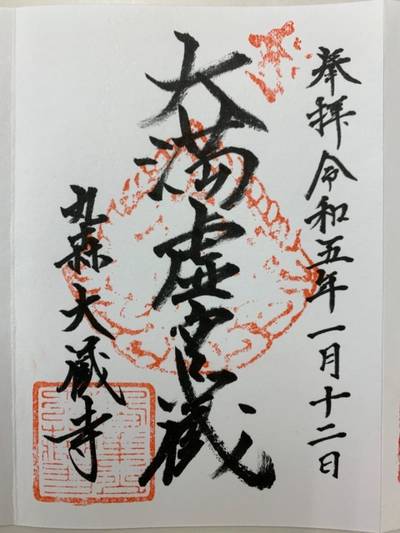 奉拝 令和五年一月十二日
大満虚空蔵
丸森 大蔵寺